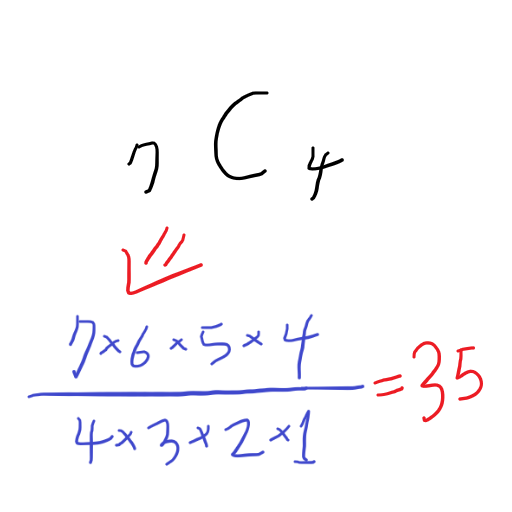 7 C 4
7×6×5×4
4×3×2×1
=35